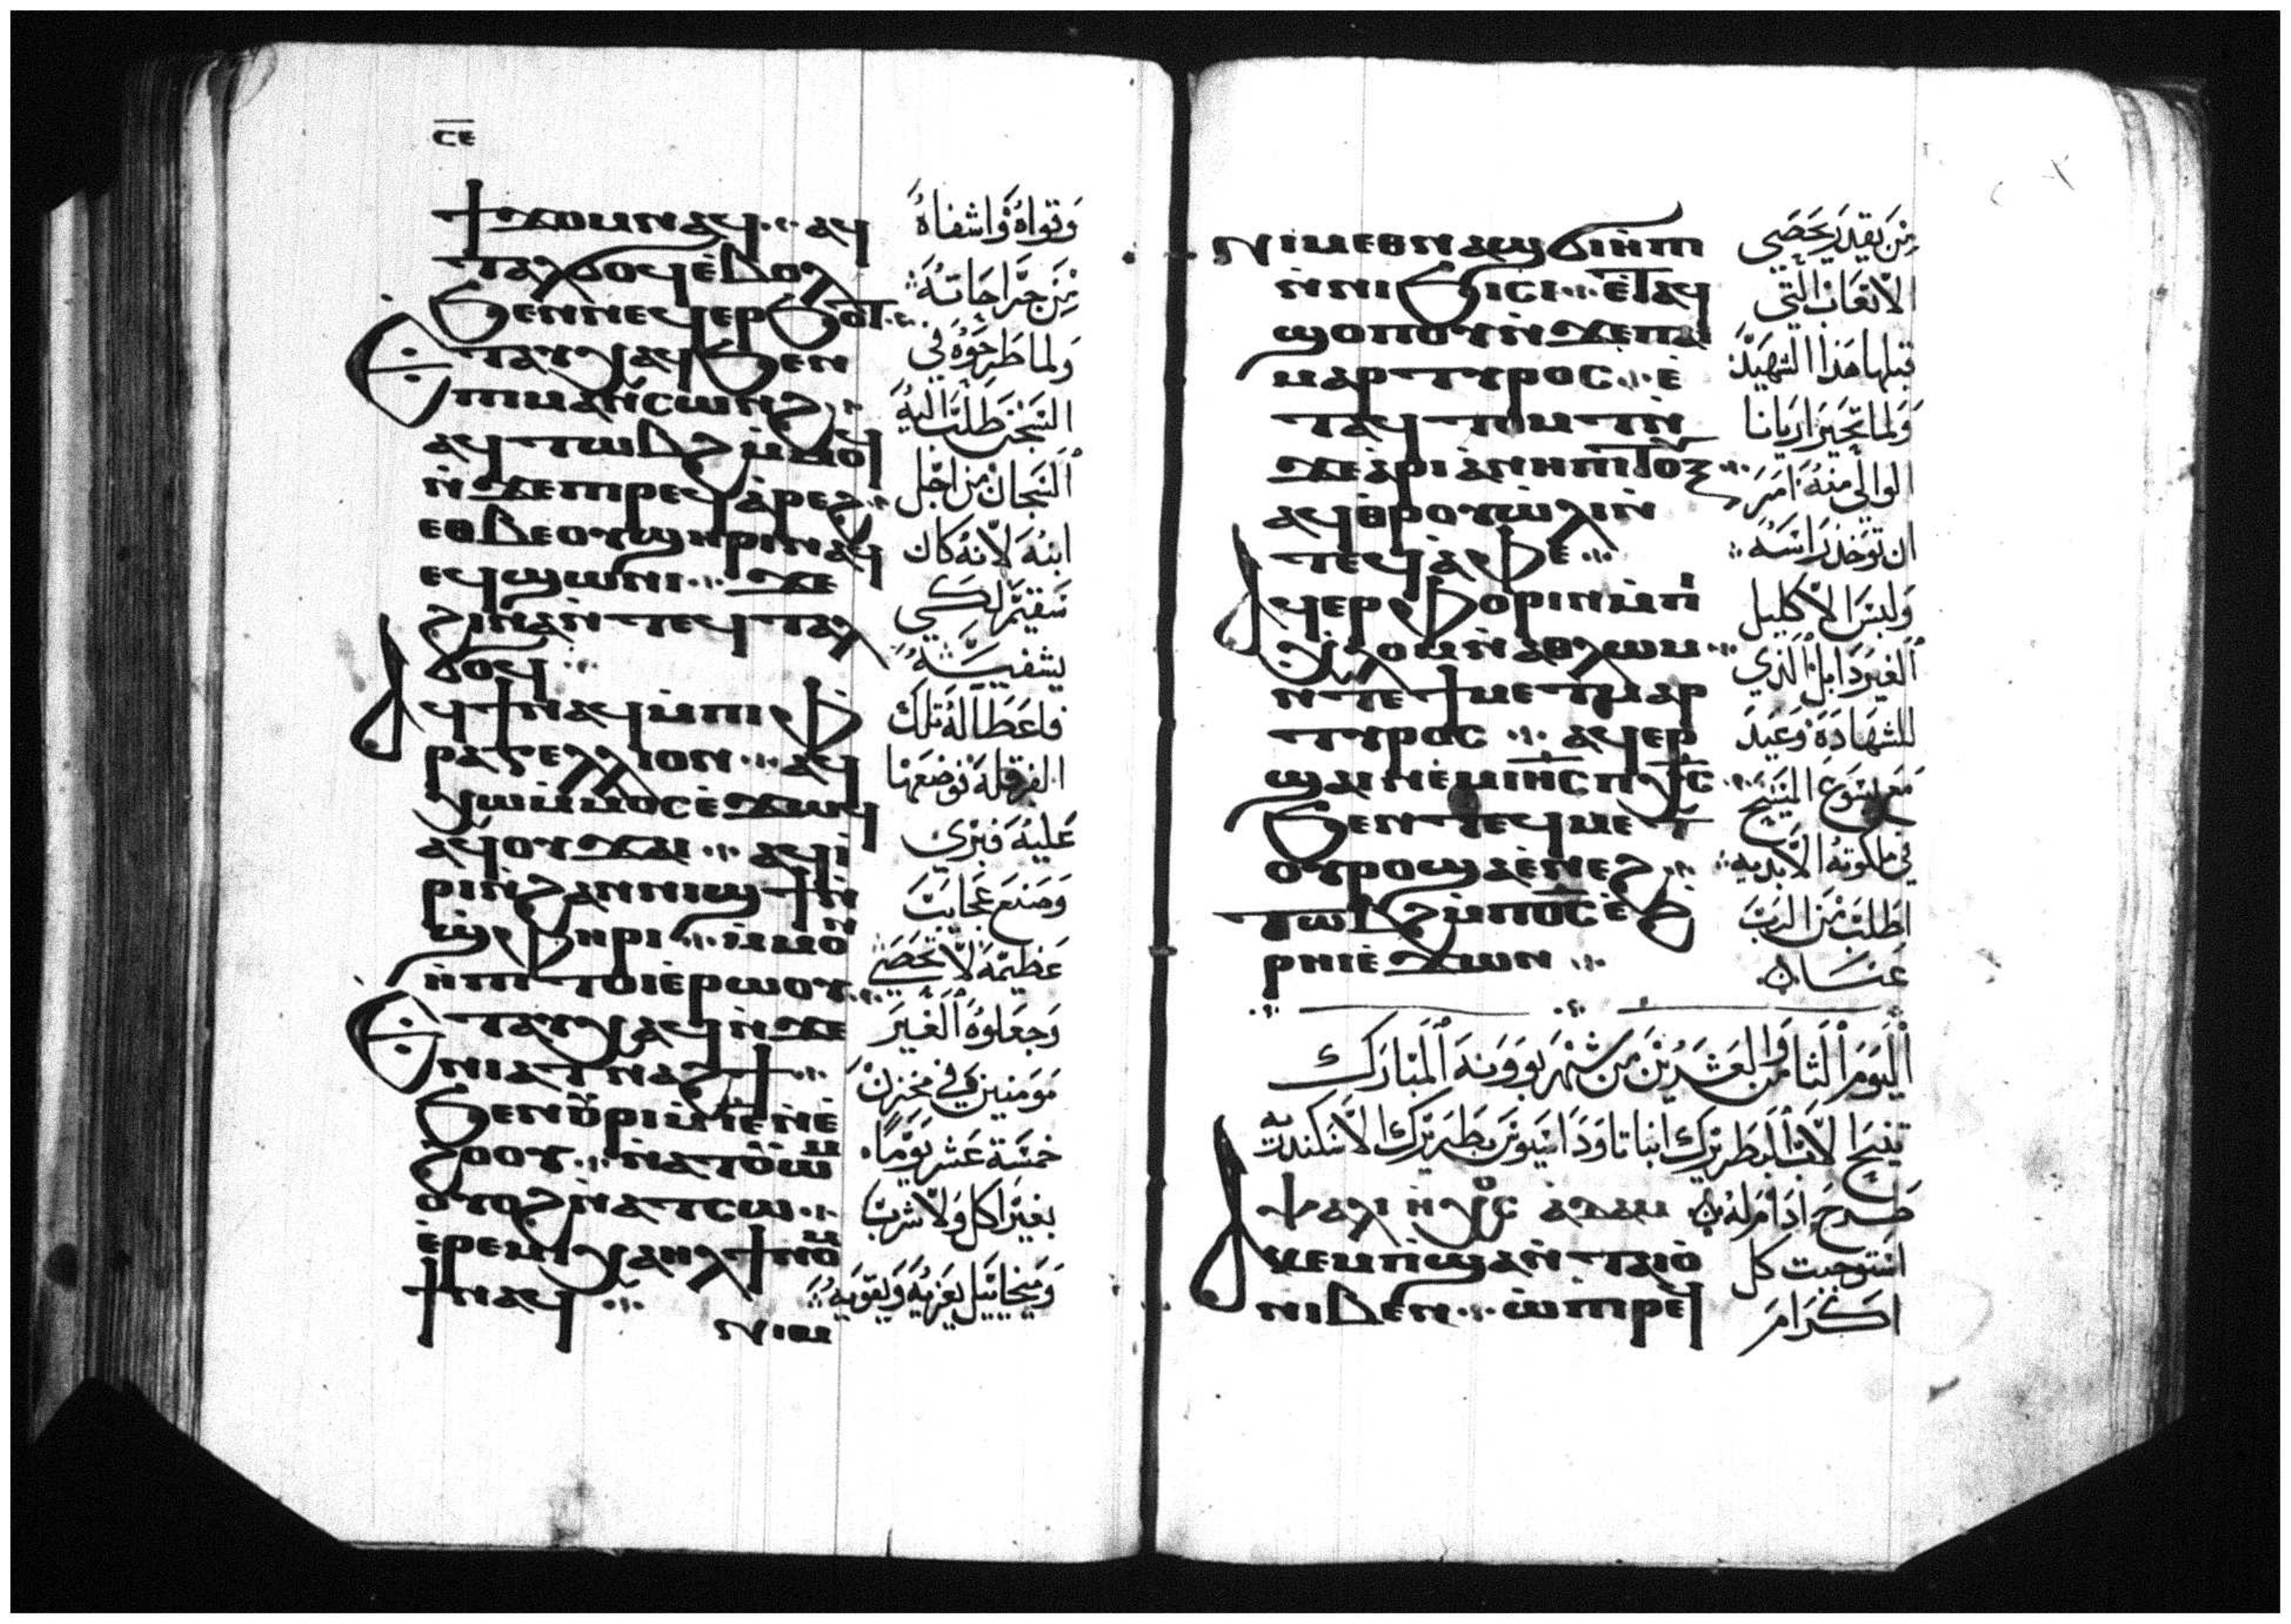 ⲥⲉ
ϯϫⲟⲙⲛⲁϥ ⁘ ⲁϥ
ⲧⲁⲗϭⲟϥⲉ̀ⲃⲟⲗ
ϧⲉⲛⲛⲉϥⲉⲣϧⲟⲧ ⁘
ⲉⲧⲁⲩⲭⲁϥϧⲉⲛ
ⲡⲓⲙⲁⲛ̀ⲥⲱⲛϩ ⁘
ⲁϥⲧⲱⲃϩⲙ̀ⲙⲟϥ
ⲛ̀ϫⲉⲡⲓⲣⲉϥⲁ̀ⲣⲉϩ ⁘
ⲉⲑⲃⲉⲟⲩϣⲏⲣⲓⲛⲁϥ
ⲉϥϣⲱⲛⲓ ⁘ ϫⲉ
ϩⲓⲛⲁⲛ̀ⲧⲉϥⲧⲁⲗ
ϭⲟϥ ⁘
ⲁϥϯⲛⲁϥⲙ̀ⲡⲓⲫ̀
ⲣⲁⲅⲉⲗⲗⲓⲟⲛ ⁘ ⲁϥ
ⲭⲱⲙ̀ⲙⲟⲥⲉ̀ϫⲱϥ
ⲁϥⲟⲩϫⲁⲓ ⁘ ⲁϥⲓ̀
ⲣⲓⲛ̀ϩⲁⲛⲛⲓϣϯⲛ̀
ϣ̀ⲫⲏⲣⲓ ⁘ ⲙ̀ⲙⲟⲛ
ⲏ̀ⲡⲓⲧⲟⲓⲉ̀ⲣⲱⲟⲩ ⁘
ⲉⲧⲁⲩⲭⲁϥⲛ̀ϫⲉ
ⲛⲓⲁⲧⲛⲁϩϯ ⁘
ϧⲉⲛⲟⲩⲣⲓⲙ̀ⲓⲉⲛ̀ⲉ̀
ϩⲟⲟⲩ ⁘ ⲛ̀ⲁⲧⲟⲩⲱⲙ
ⲟⲩⲟϩⲛ̀ⲁⲧⲥⲱ ⁘
ⲉ̀ⲣⲉⲙⲓⲭⲁⲏⲗϯⲛⲟⲙ
ϯⲛⲁϥ ⁘
ⲛⲓⲙ
وَقواهُ وَاشفاهُ
مِن جَراحَاتهُ
وَلما طَرحَوُه في
السَجن طَلبَ اليهُ
اَلسَجان مَن اجَل
ابنهُ لانهُ كان
سَقيمَ لِكَي
يشفيَه
فاعَطا لهُ تلك
الفرقلهَ فوضعَهَا
عَليهُ فبَرى
وَصنعَ عَجايبَ
عَظيمهَ لا تحَصَى
وَجعَلوهُ اَلغَير
مَومنين في مخزن
خمسَة عَشر يَومًا
بغيَر اكل وَلا شرب
وَميخاييَل يَعَزيهُ وَيقَويهُ
ⲛⲓⲙⲉⲑⲛⲁϣϭⲓⲏ̀ⲡⲓ
ⲛ̀ⲛⲓϧⲓⲥⲓ ⁘ ⲉ̀ⲧⲁϥ
ϣⲟⲡⲟⲩⲛ̀ϫⲉⲡⲁⲓ
ⲙⲁⲣⲧⲩⲣⲟⲥ ⁘ ⲉ̀
ⲧⲁϥⲧⲟⲙⲧⲛ̀
ϫⲉⲁ̀ⲣⲓⲁ̀ⲛⲏⲡⲓ
ⲁϥⲑⲣⲟⲩⲱ̀ⲗⲓⲛ̀
ⲧⲉϥⲁ̀ⲫⲉ ⁘
ⲁϥⲉⲣⲫⲟⲣⲓⲛⲙ̀ⲡⲓ
ⲭ̀ⲗⲟⲙⲛ̀ⲁⲑⲗⲱⲙ ⁘
ⲛⲧⲉϯⲙⲉⲧⲙⲁⲣ
ⲧⲩⲣⲟⲥ ⁘ ⲁϥⲉⲣ
ϣⲁⲓⲛⲉⲙⲓⲏⲥⲡⲭⲥ ⁘
ϧⲉⲛⲧⲉϥⲙⲉⲧ
ⲟⲩⲣⲟϣⲁⲉ̀ⲛⲉϩ ⁘
ⲧⲱⲃϩⲙ̀ⲡⲟⲥⲉ̀ϩ
ⲣⲏⲓⲉ̀ϫⲱⲛ ⁘
مِن يَقدر يَحصَي
الاتعَاب التي
قبلها هَذا الشهيَد
وَلما تحَيرَ اريانا
الوالي منهُ اَمَرَ
ان توَخذ رَاسَهُ
وَلبسَ الاكليل
اَلغيَر دَابل اَلذي
للشهَادَهَ وَعَيدَ
مَع يسَوعَ المَسَيح
في ملكوتهُ الابديه
اطَلبَ مَن الربَ
عَنا
اليَوَم الَثامن وَالعَشرين مَن شهر بَووَنهَ اَلمَبارَك
تنيَح الابَ اَلبَطَريَرك انبا تاودَاسَيوس بَطَريَرك الاسَكندريه
ⲯⲁⲗⲓ ⲛ̀ⲭⲟⲥ ⲁⲇⲁⲙ
ⲕⲉⲙⲡ̀ϣⲁⲛ̀ⲧⲁⲓⲟ̀
ⲛⲓⲃⲉⲛ ⁘ ⲱ̀ⲡⲓⲣⲉϥ
استوجبت كل
اكَرامَ